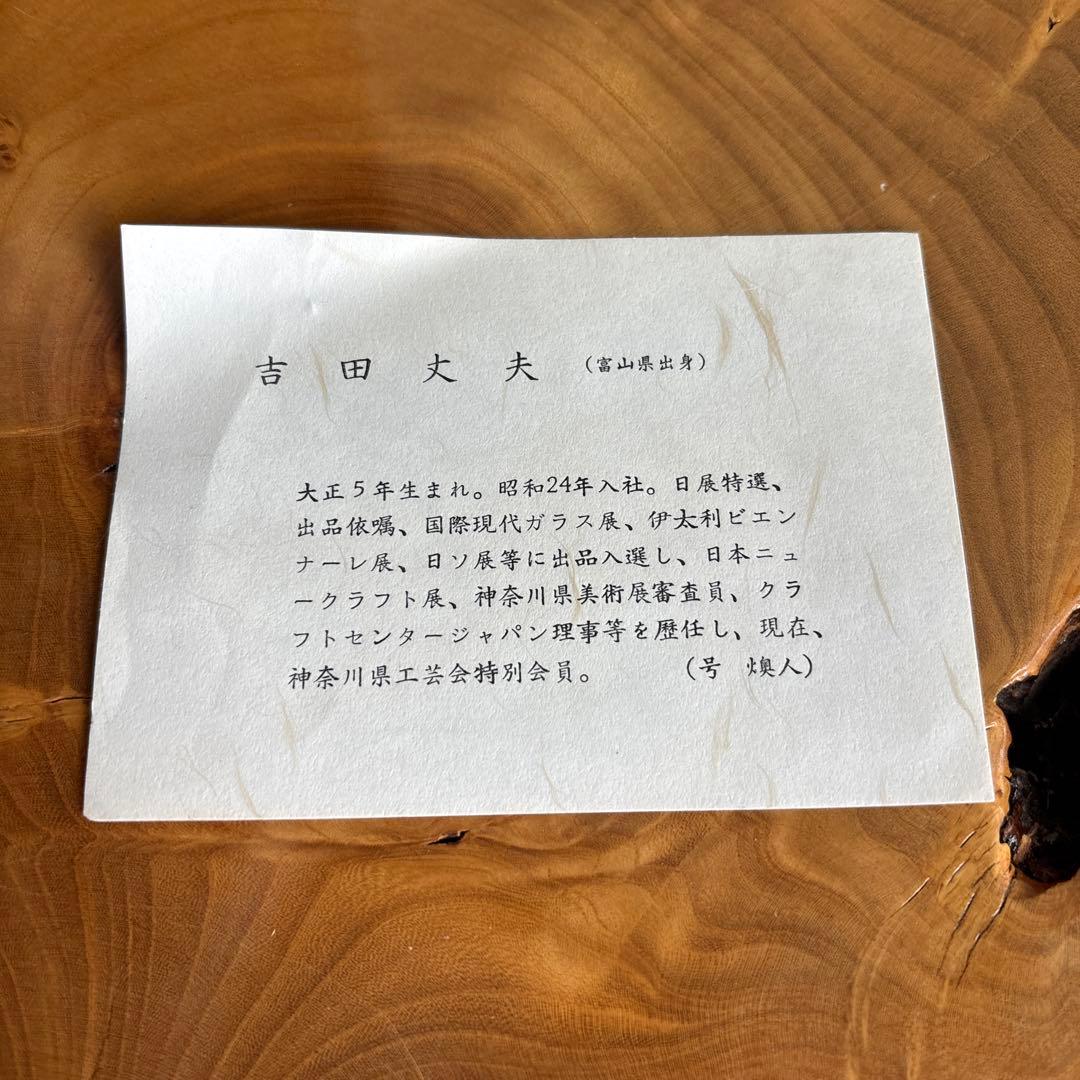 吉田丈夫 (富山県出身)
大正5年生まれ。昭和24年入社。日展特選、
出品依嘱、国際現代ガラス展、伊太利ビエン
ナーレ展、日ソ展等に出品入選し、日本ニュ
ークラフト展、神奈川県美術展審査員、クラ
フトセンタージャパン理事等を歴任し、現在、
神奈川県工芸会特別会員。 (号 燠人)